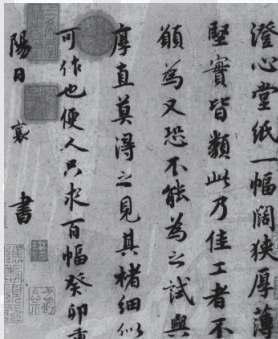 澄心堂纸一幅闊狭厚薄
堅實皆類此乃佳工者不
願為又恐不能為之試與
厚直莫得之見其楮細似
可作也便人只求百幅癸卯重
陽日 襄 書